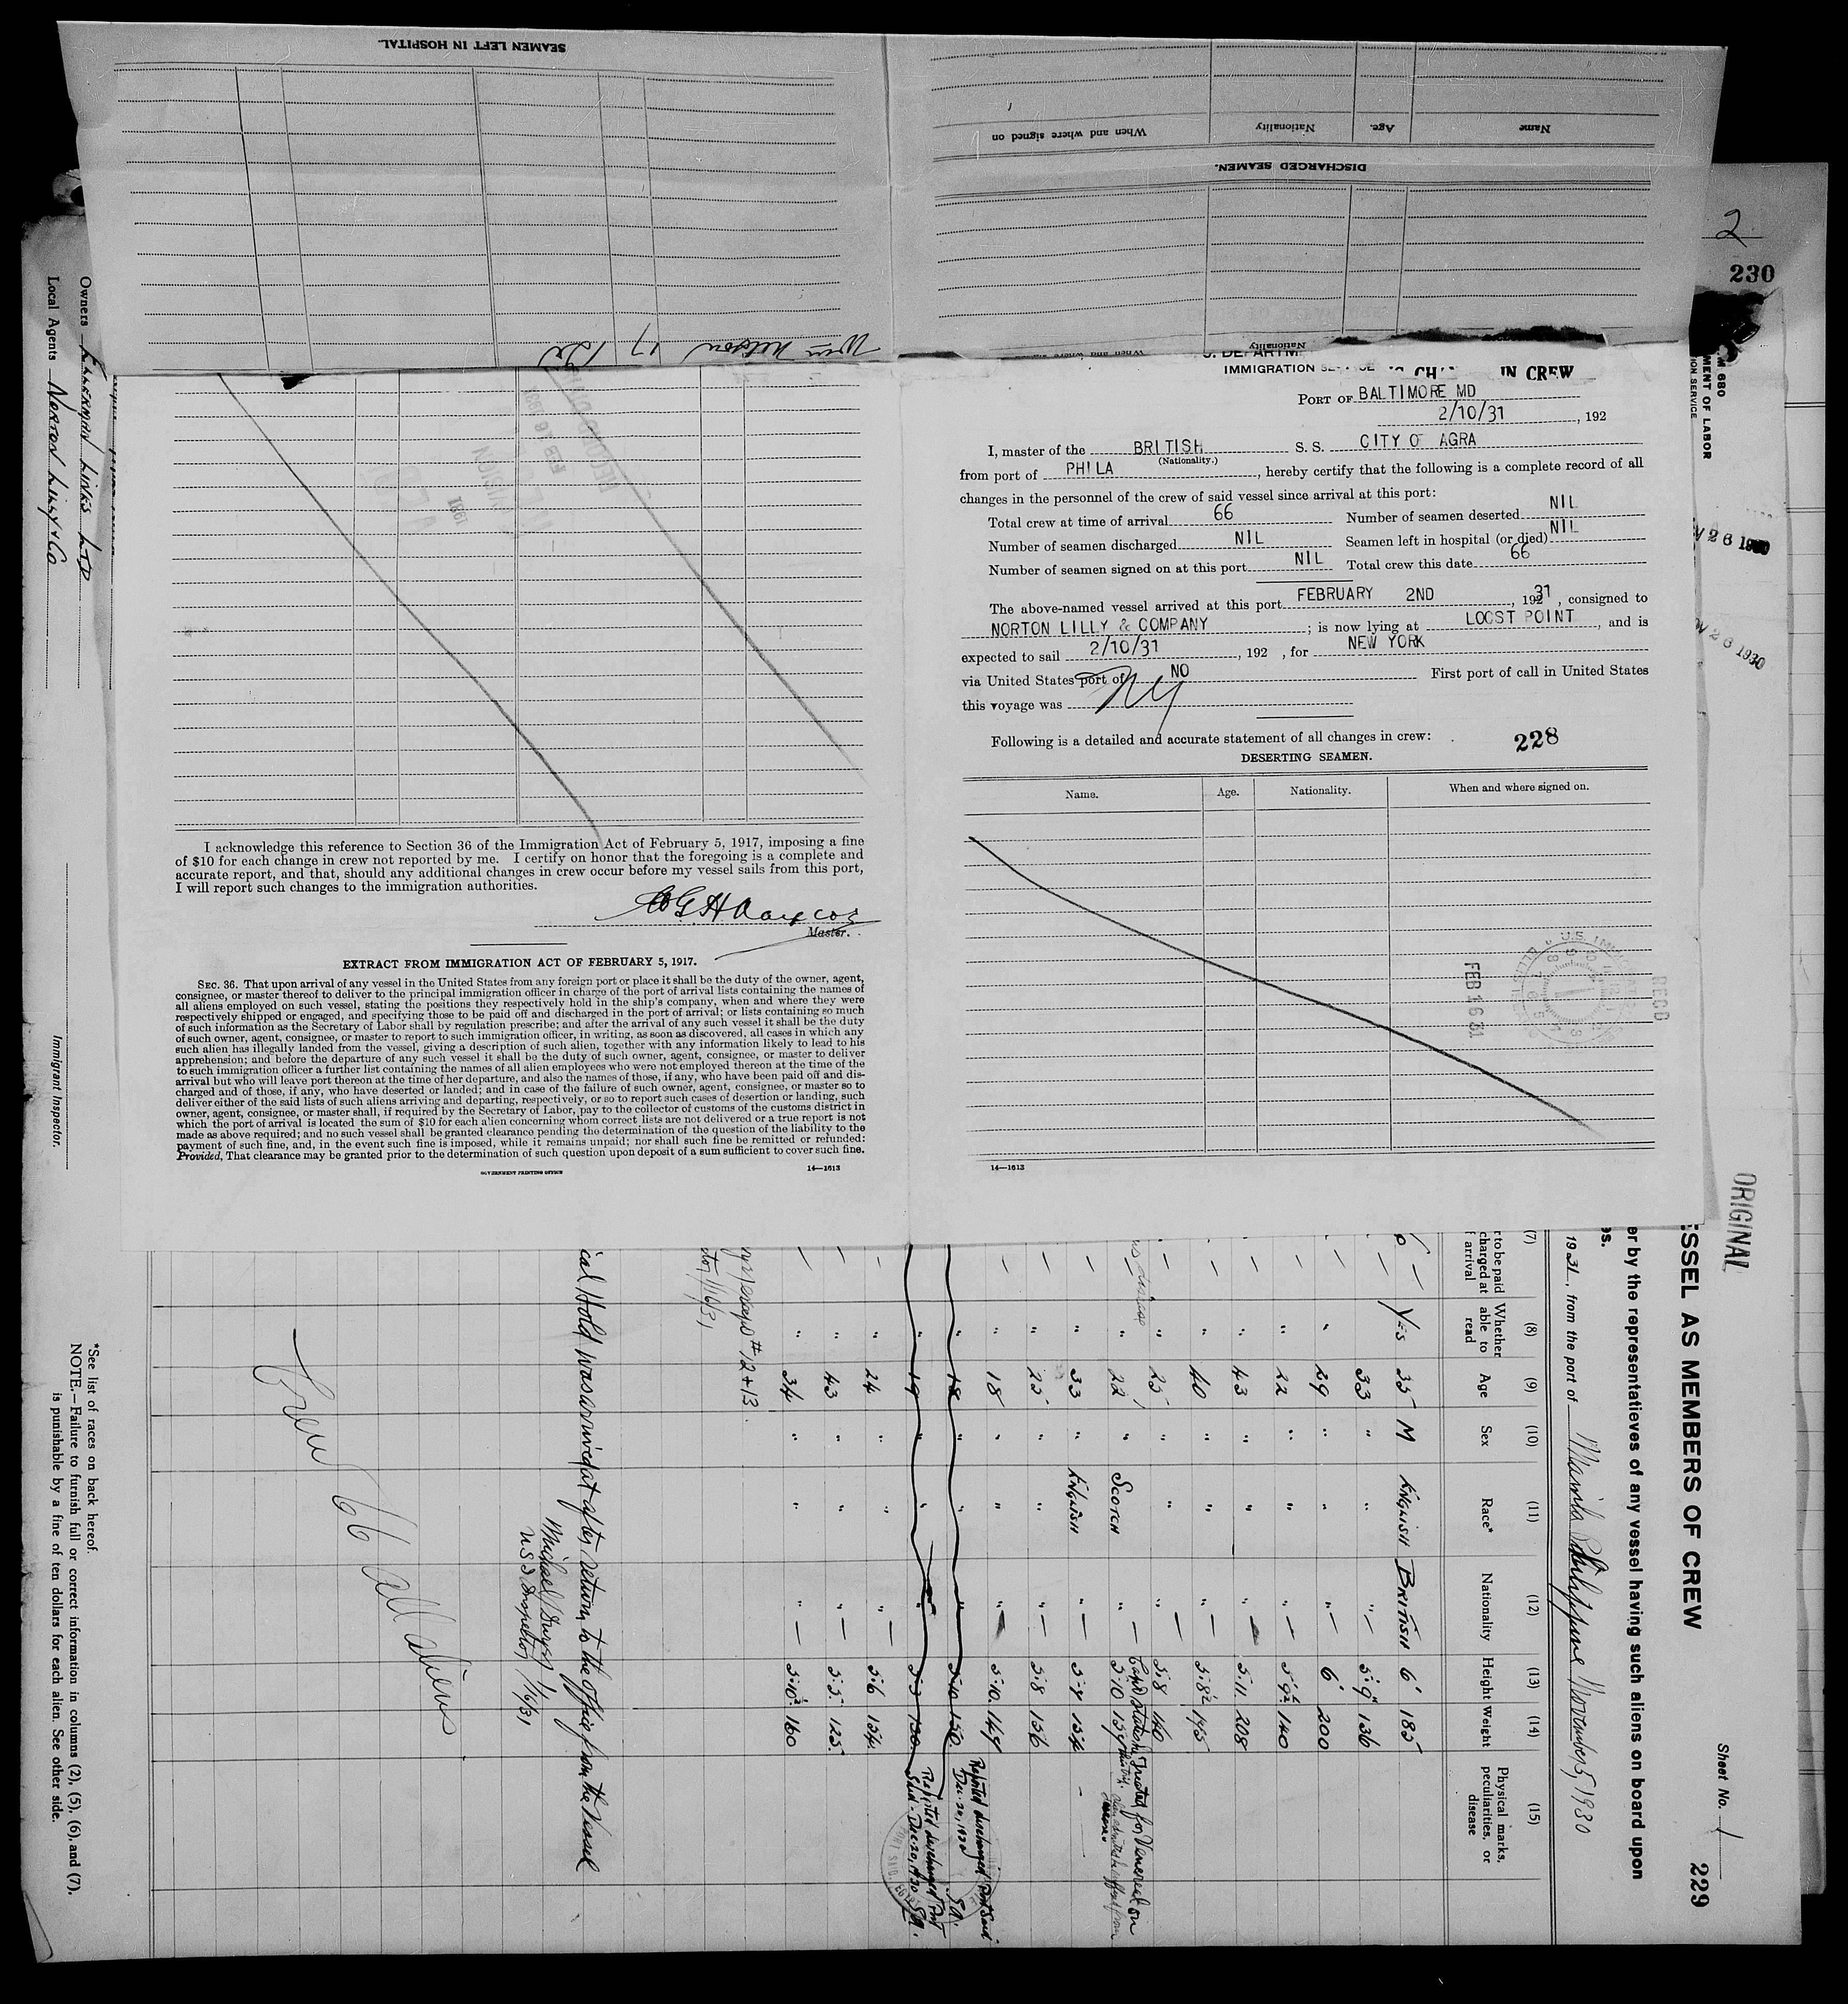 SEAMEN LEFT IN HOSPITAL.
When and where signed on
Nationality
Age.
Name
DISCHARGED SEAMEN.
When and where signed on
Nationality
2
230
Owners ELLERMAN LINES LTD
Local Agents NORTON LILLY & Co
IMMIGRATION
IN CREW
PORT OF BALTIMORE MD
2/10/31, 192
I, master of the BRITISH S. S. CITY OF AGRA
(Nationality.)
from port of PHILA, hereby certify that the following is a complete record of all
changes in the personnel of the crew of said vessel since arrival at this port:
Total crew at time of arrival 66 Number of seamen deserted NIL
Number of seamen discharged NIL Seamen left in hospital (or died) NIL
Number of seamen signed on at this port NIL Total crew this date 66
The above-named vessel arrived at this port FEBRUARY 2ND, 19231, consigned to
NORTON LILLY & COMPANY; is now lying at LOCST POINT, and is
expected to sail 2/10/31, 192 , for NEW YORK
via United States port of NO First port of call in United States
this voyage was NY
Following is a detailed and accurate statement of all changes in crew:
228
DESERTING SEAMEN.
Name. Age. Nationality. When and where signed on.
FEB 16 31
RECD
14—1613
I acknowledge this reference to Section 36 of the Immigration Act of February 5, 1917, imposing a fine
of $10 for each change in crew not reported by me. I certify on honor that the foregoing is a complete and
accurate report, and that, should any additional changes in crew occur before my vessel sails from this port,
I will report such changes to the immigration authorities.
Master.
EXTRACT FROM IMMIGRATION ACT OF FEBRUARY 5, 1917.
SEC. 36. That upon arrival of any vessel in the United States from any foreign port or place it shall be the duty of the owner, agent,
consignee, or master thereof to deliver to the principal immigration officer in charge of the port of arrival lists containing the names of
all aliens employed on such vessel, stating the positions they respectively hold in the ship's company, when and where they were
respectively shipped or engaged, and specifying those to be paid off and discharged in the port of arrival; or lists containing so much
of such information as the Secretary of Labor shall by regulation prescribe; and after the arrival of any such vessel it shall be the duty
of such owner, agent, consignee, or master to report to such immigration officer, in writing, as soon as discovered, all cases in which any
such alien has illegally landed from the vessel, giving a description of such alien, together with any information likely to lead to his
apprehension; and before the departure of any such vessel it shall be the duty of such owner, agent, consignee, or master to deliver
to such immigration officer a further list containing the names of all alien employees who were not employed thereon at the time of the
arrival but who will leave port thereon at the time of her departure, and also the names of those, if any, who have been paid off and dis-
charged and of those, if any, who have deserted or landed; and in case of the failure of such owner, agent, consignee, or master so to
deliver either of the said lists of such aliens arriving and departing, respectively, or so to report such cases of desertion or landing, such
owner, agent, consignee, or master shall, if required by the Secretary of Labor, pay to the collector of customs of the customs district in
which the port of arrival is located the sum of $10 for each alien concerning whom correct lists are not delivered or a true report is not
made as above required; and no such vessel shall be granted clearance pending the determination of the question of the liability to the
payment of such fine, and, in the event such fine is imposed, while it remains unpaid; nor shall such fine be remitted or refunded:
Provided, That clearance may be granted prior to the determination of such question upon deposit of a sum sufficient to cover such fine.
GOVERNMENT PRINTING OFFICE
14—1613
680
MENT OF LABOR
ION SERVICE
V 26 1930
OV 26 1930
ORIGINAL
Sheet No. 1
229
SSEL AS MEMBERS OF CREW
er by the representatieves of any vessel having such aliens on board upon
es.
1931, from the port of Manila Philippine November 5, 1930
(7) (8) (9) (10) (11) (12) (13) (14) (15)
r to be paid charged at f arrival
Whether able to read
Age
Sex
Race*
Nationality
Height
Weight
Physical marks, peculiarities, or disease
— Yes 35 M ENGLISH BRITISH 6' 185
— 33 " " " 5-9 136
— " 29 " " " 6' 200
— " 22 " " " 5-9½ 140
— " 43 " " 5-11 208
— " 40 " " " 5-8½ 145
— " 25 " " " 5-8 140
— " 22 " SCOTCH " 5-10
— " 33 " ENGLISH " 5-4 134
— " 25 " " " 5-8 156
— " 18 " " " 5-10 147
" 18 " " " 5-10 150 Reported discharged Port Said Dec. 20, 1930
" 19 " " " 5-3 130 Reported discharged Port Said - Dec. 20, 1930
— " 24 " " " 5-6 134
— " 43 " " " 5-5 125
— " 34 " " " 5-10½ 160
#12 + 13
1/16/31
cal Hold was arrived at after return to the office from the Vessel
1/16/31
Crew 66 all aliens
Immigrant Inspector.
*See list of races on back hereof.
NOTE.—Failure to furnish full or correct information in columns (2), (5), (6), and (7),
is punishable by a fine of ten dollars for each alien. See other side.